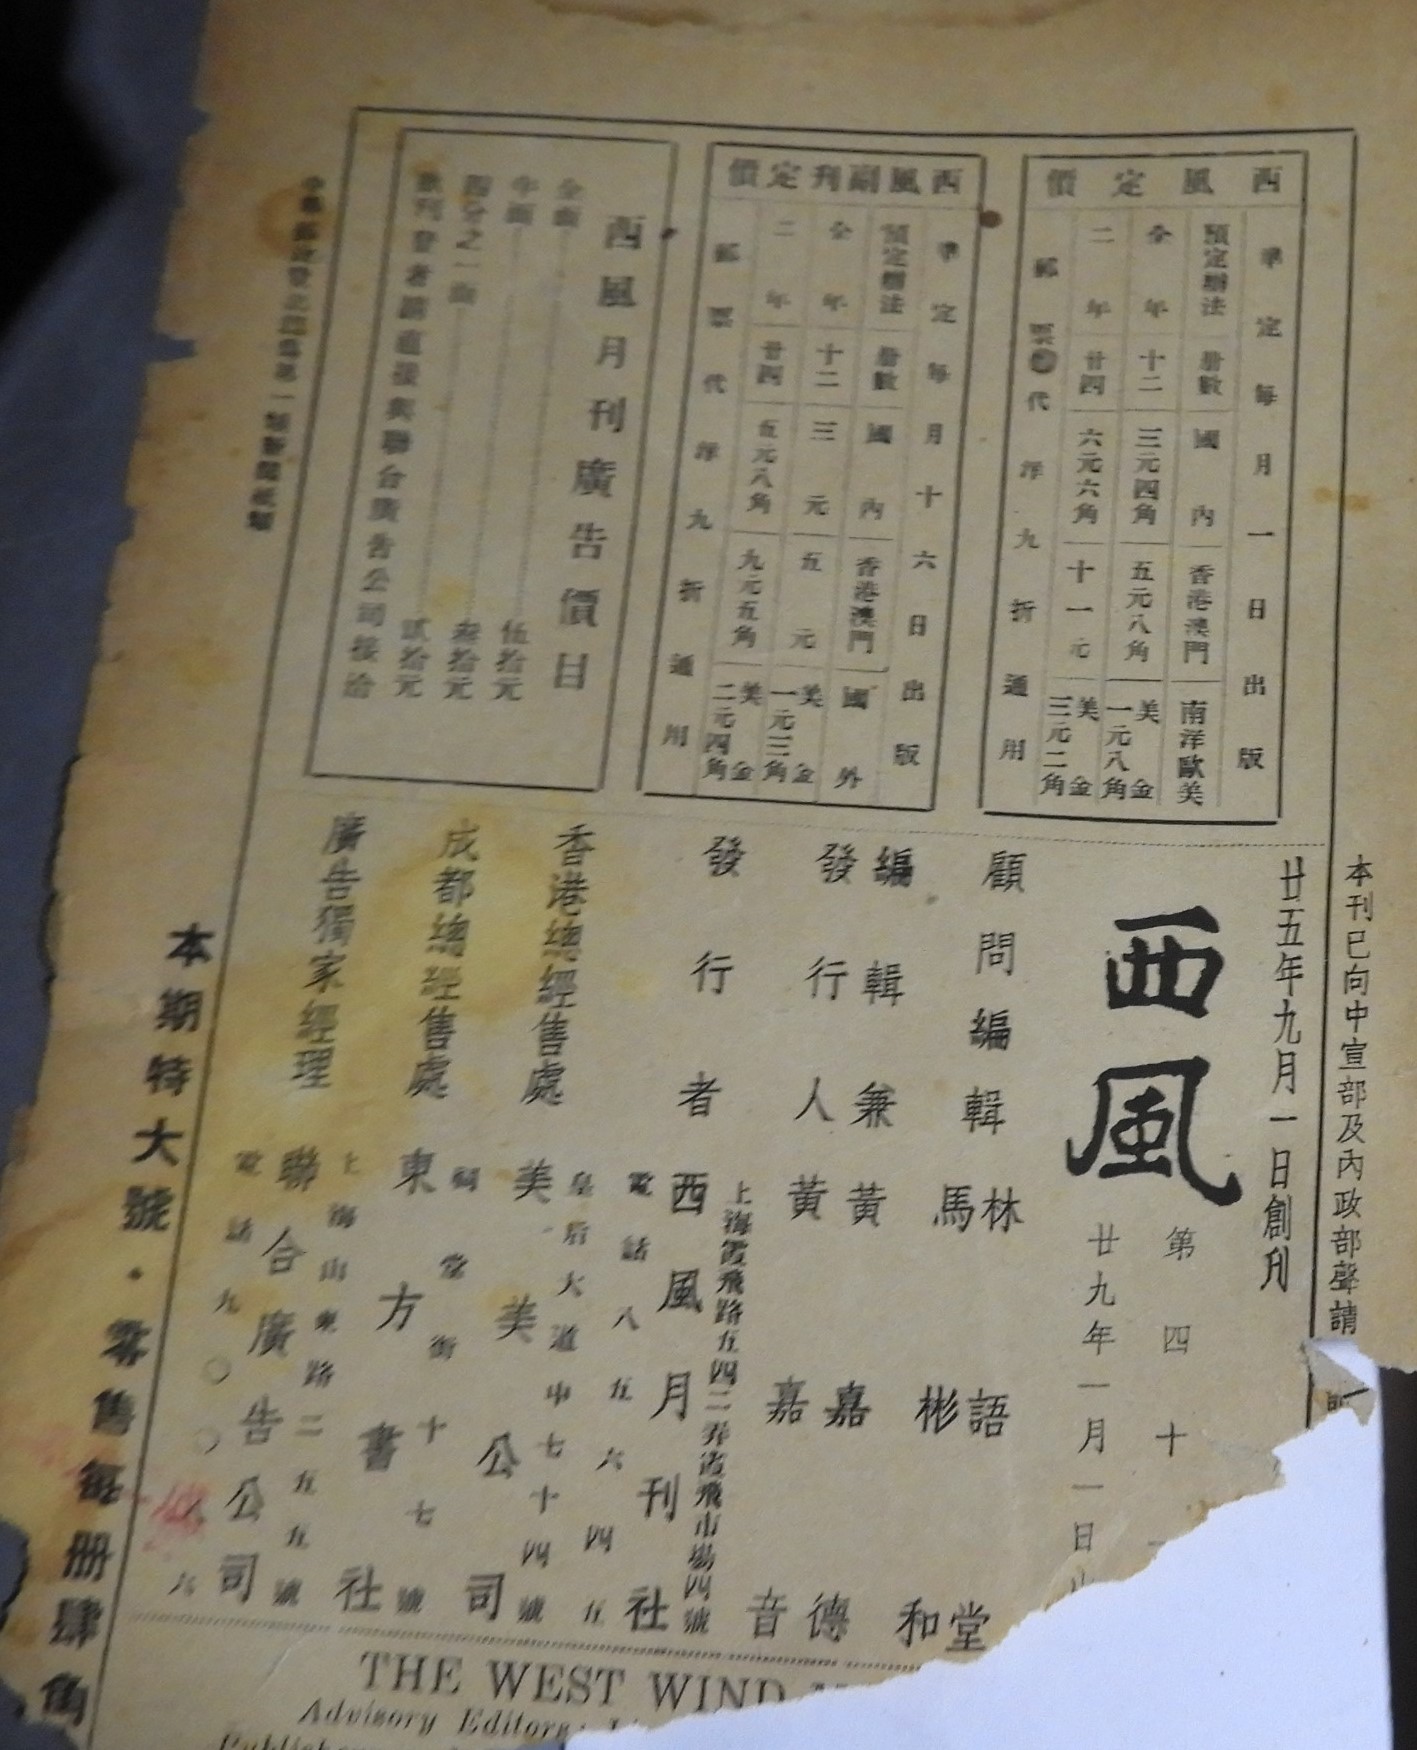 本刊已向中宣部及內政部聲請
廿五年九月一日創刊
西風
第四十
廿九年一月一日
顧問編輯 林語堂 馬彬和
編輯兼發行人 黃嘉德 黃嘉音
發行者 西風月刊社
上海霞飛路五四二弄霞飛市場四號
電話八五六四五
香港總經售處 美美公司
皇后大道中七十四號
成都總經售處 東方書社
祠堂街十七號
廣告獨家經理 聯合廣告公司
上海山東路二五五號
電話九〇〇
本期特大號・零售每册肆角
西風定價
準定每月一日出版
預定辦法 册數 國內 香港澳門 南洋歐美
全年 十二 三元四角 五元八角 美金一元八角
二年 廿四 六元六角 十一元 美金三元二角
郵票代洋九折通用
西風副刊定價
準定每月十六日出版
預定辦法 册數 國內 香港澳門 國外
全年 十二 三元 五元 美金一元三角
二年 廿四 五元八角 九元五角 美金二元四角
郵票代洋九折通用
西風月刊廣告價目
全面 伍拾元
半面 叁拾元
四分之一面 貳拾元
欲刊登者請直接與聯合廣告公司接洽
THE WEST WIND
Advisory Editors: